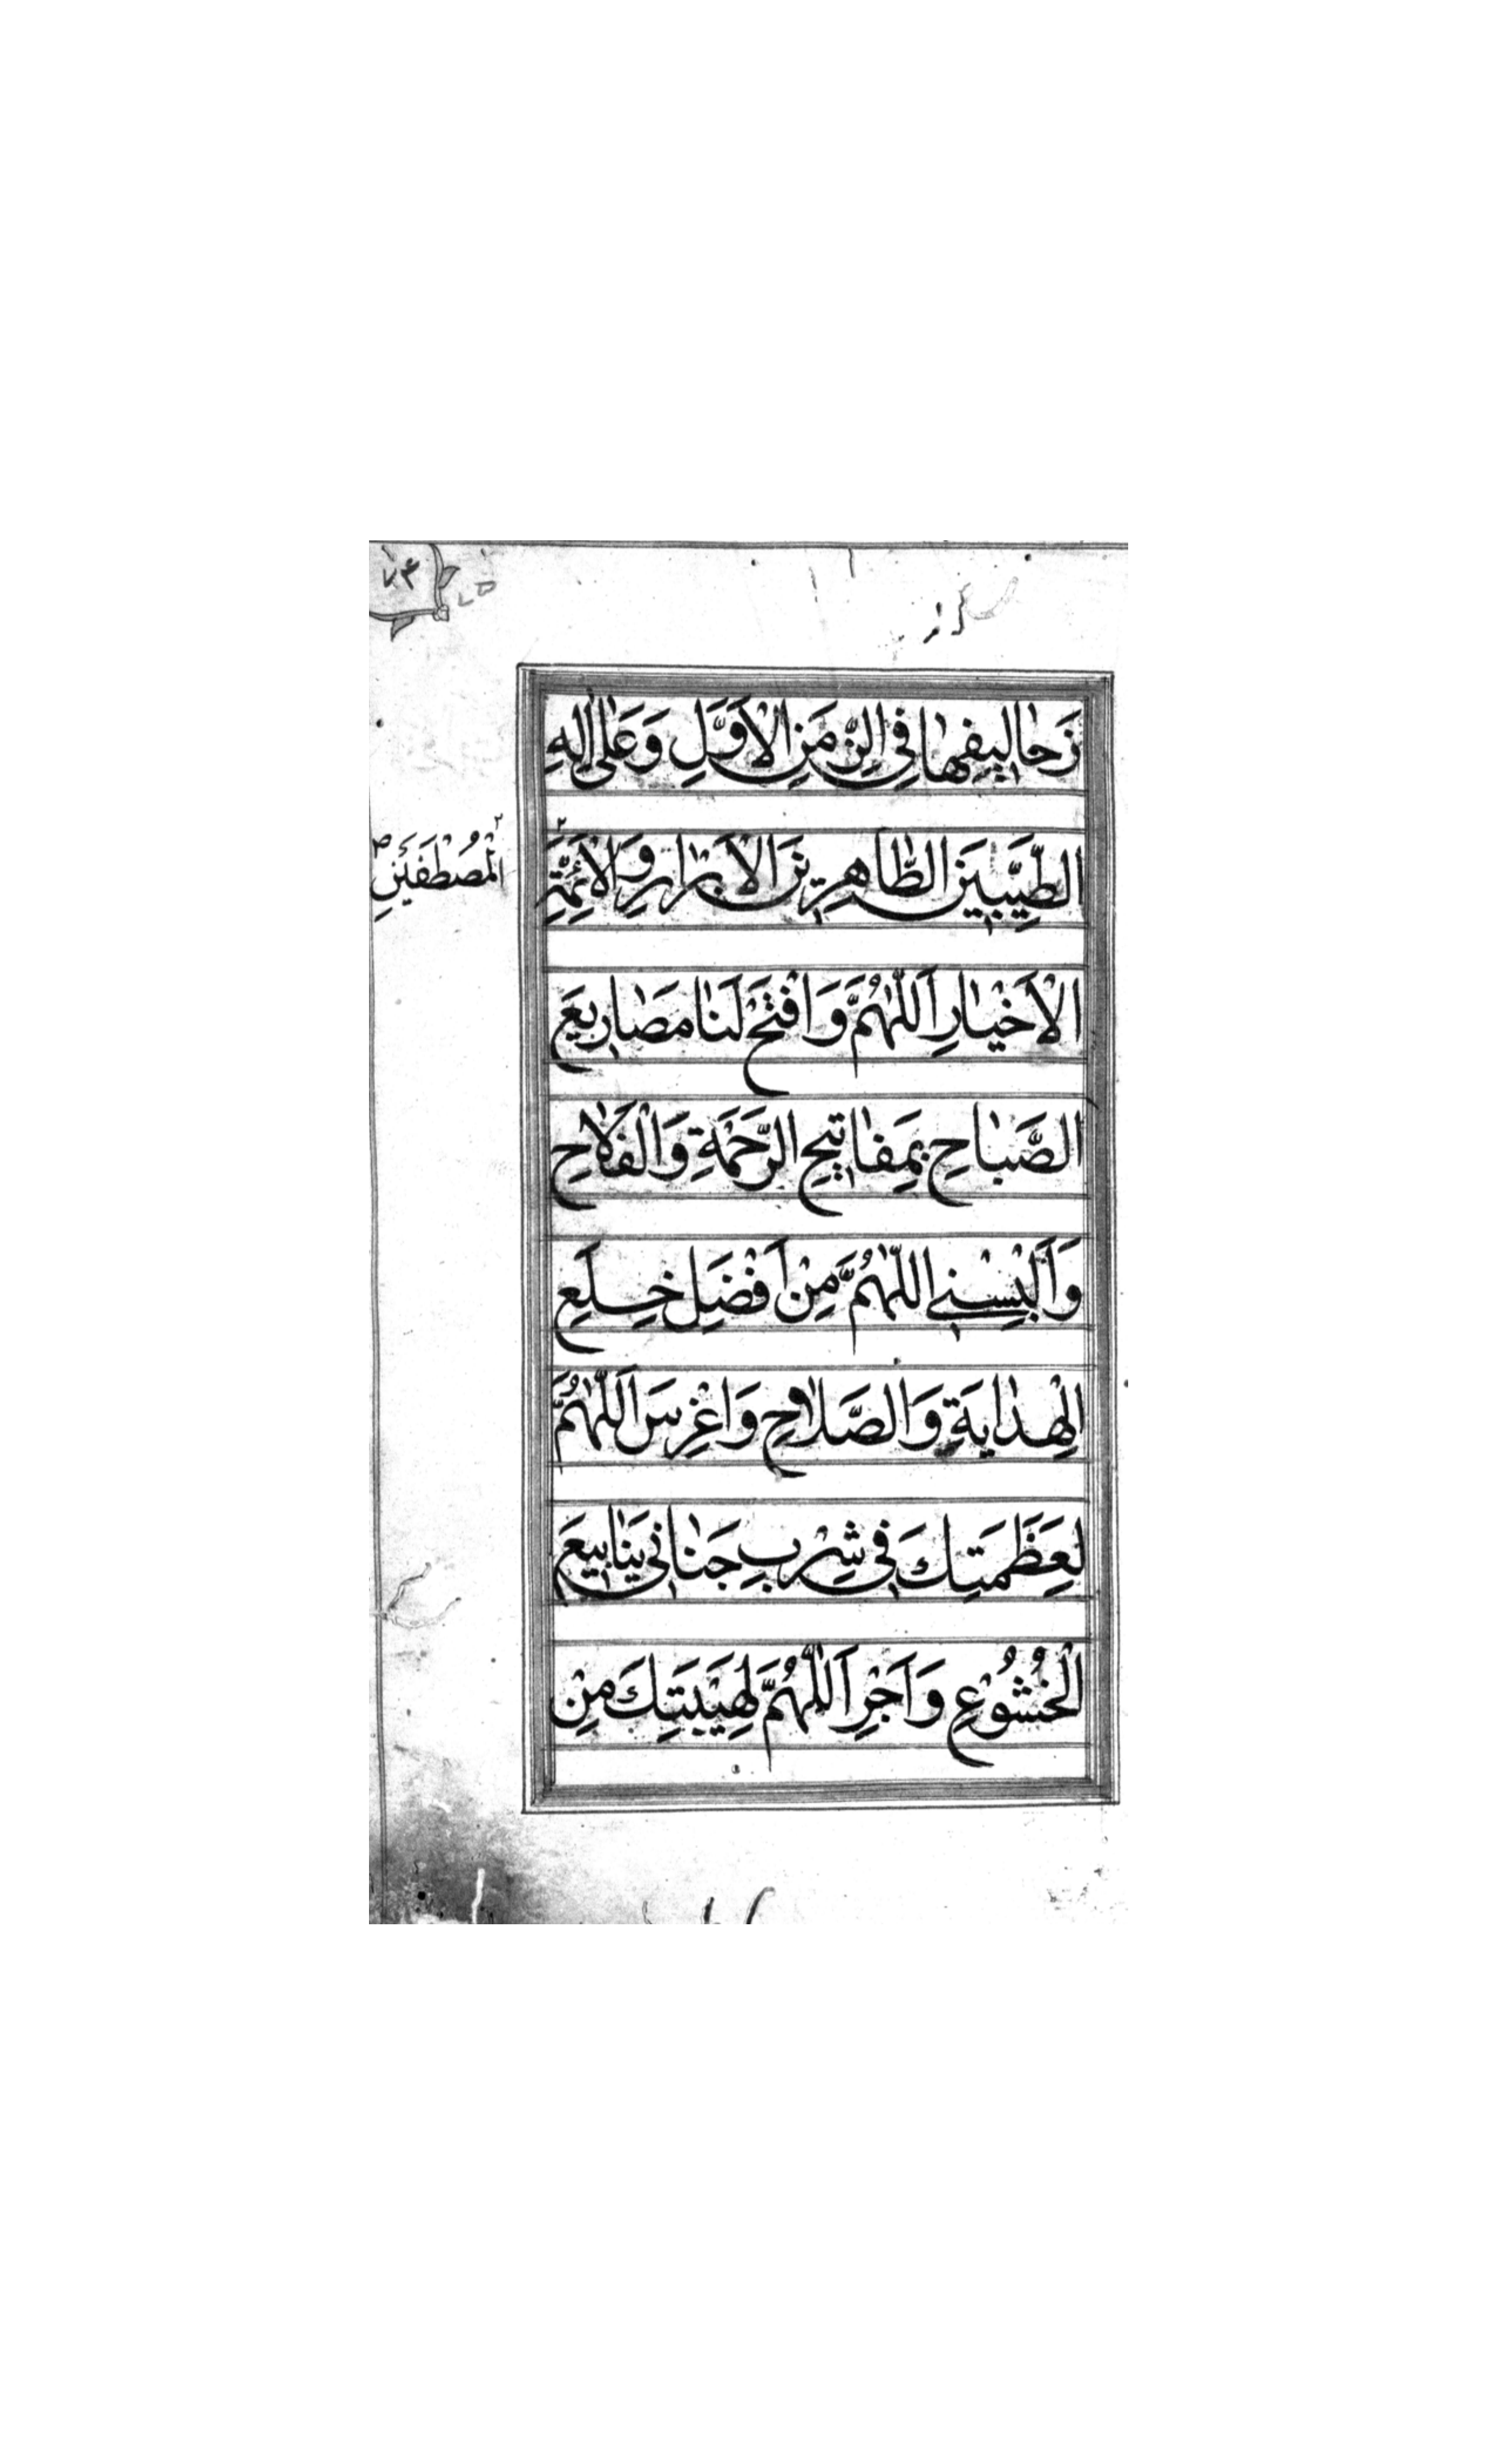 ۷۴
زَحَالِيفِهَا فِي الزَّمَنِ الْاَوَّلِ وَعَلٰى اٰلِهِ
الطَّيِّبِينَ الطَّاهِرِينَ الْاَبْرَارِ وَالْاَئِمَّةِ
الْمُصْطَفَيْنَ
الْاَخْيَارِ اَللّٰهُمَّ وَافْتَحْ لَنَا مَصَارِيعَ
الصَّبَاحِ بِمَفَاتِيحِ الرَّحْمَةِ وَالْفَلَاحِ
وَاَلْبِسْنِي اللّٰهُمَّ مِنْ اَفْضَلِ خِلَعِ
الْهِدَايَةِ وَالصَّلَاحِ وَاغْرِسِ اَللّٰهُمَّ
لِعَظَمَتِكَ فِي شِرْبِ جَنَانِي يَنَابِيعَ
الْخُشُوْعِ وَاَجْرِ اَللّٰهُمَّ لِهَيْبَتِكَ مِنْ